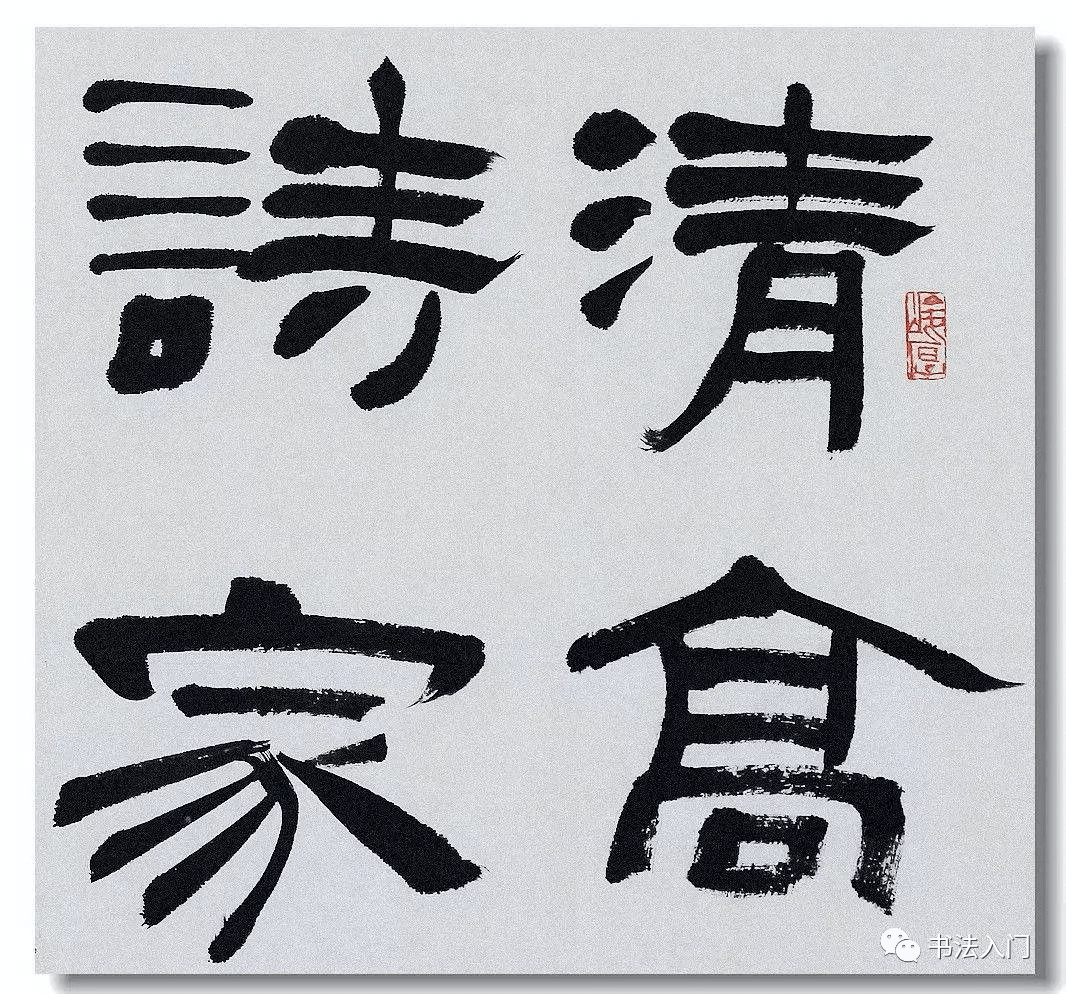 清髙
詩家
书法入门